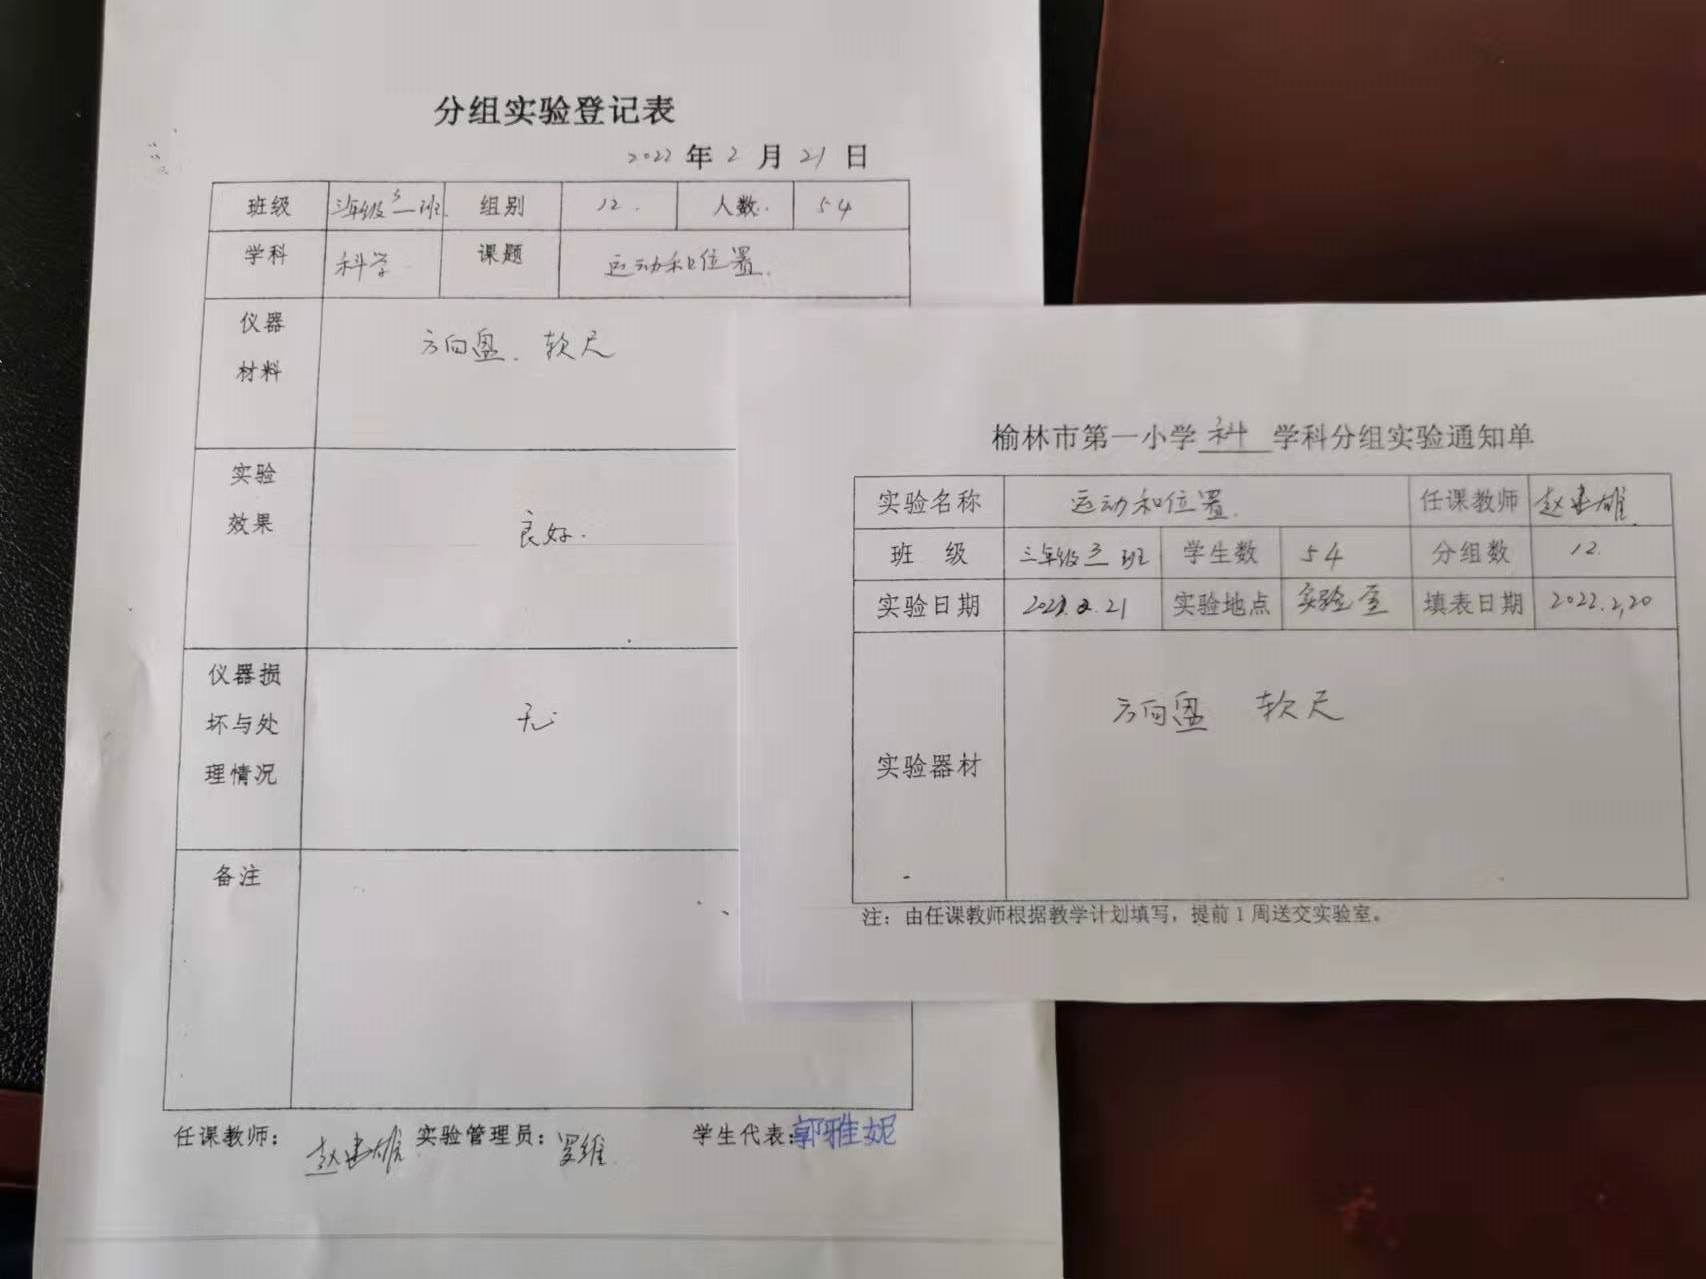 分组实验登记表
2022 年 2 月 21 日
班级 三年级三班 组别 12. 人数 54
学科 科学 课题 运动和位置.
仪器 材料 方向盘. 软尺
实验 效果 良好.
仪器损 坏与处 理情况 无
备注
任课教师: 赵忠雄 实验管理员: 罗维 学生代表: 郭雅妮
榆林市第一小学 科 学科分组实验通知单
实验名称 运动和位置. 任课教师 赵忠雄
班 级 三年级三班 学生数 54 分组数 12.
实验日期 2022.2.21 实验地点 实验室 填表日期 2022.2.20
实验器材 方向盘 软尺
注: 由任课教师根据教学计划填写, 提前1周送交实验室。